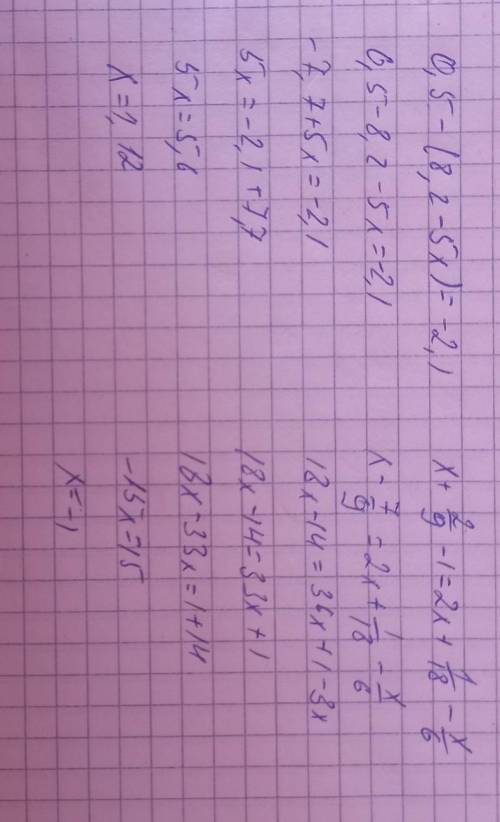 0,5-(8,2-5x)=-2,1
0,5-8,2-5x=-2,1
-7,7+5x=-2,1
5x=-2,1+7,7
5x=5,6
x=1,12
x+2/9-1=2x+1/18-x/6
x-7/9=2x+1/18-x/6
18x-14=36x+1-3x
18x-14=33x+1
18x-33x=1+14
-15x=15
x=-1